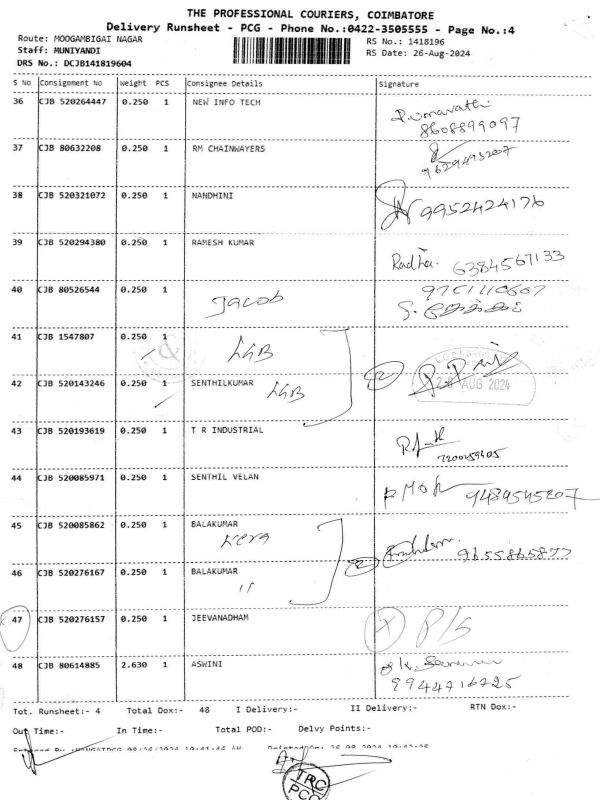 THE PROFESSIONAL COURIERS, COIMBATORE
Delivery Runsheet - PCG - Phone No.:0422-3505555 - Page No.:4
Route: MOOGAMBIGAI NAGAR
RS No.: 1418196
Staff: MUNIYANDI
RS Date: 26-Aug-2024
DRS No.: DCJB141819604
S No Consignment No Weight PCS Consignee Details Signature
36 CJB 520264447 0.250 1 NEW INFO TECH
8608899097
37 CJB 80632208 0.250 1 RM CHAINWAYERS
9629493207
38 CJB 520321072 0.250 1 NANDHINI 9952424176
39 CJB 520294380 0.250 1 RAMESH KUMAR
Radha. 6384567133
40 CJB 80526544 0.250 1 Jacob
41 CJB 1547807 0.250 1 LGB
42 CJB 520143246 0.250 1 SENTHILKUMAR LGB 2
AUG 2024
43 CJB 520193619 0.250 1 T R INDUSTRIAL
7200259605
44 CJB 520085971 0.250 1 SENTHIL VELAN
9489545207
45 CJB 520085862 0.250 1 BALAKUMAR
2 9655865877
46 CJB 520276167 0.250 1 BALAKUMAR
11
47 CJB 520276157 0.250 1 JEEVANADHAM X P/S
48 CJB 80614885 2.630 1 ASWINI
9944716725
Tot. Runsheet:- 4 Total Dox:- 48 I Delivery:- II Delivery:- RTN Dox:-
Out Time:- In Time:- Total POD:- Delvy Points:-
TRC
PCG